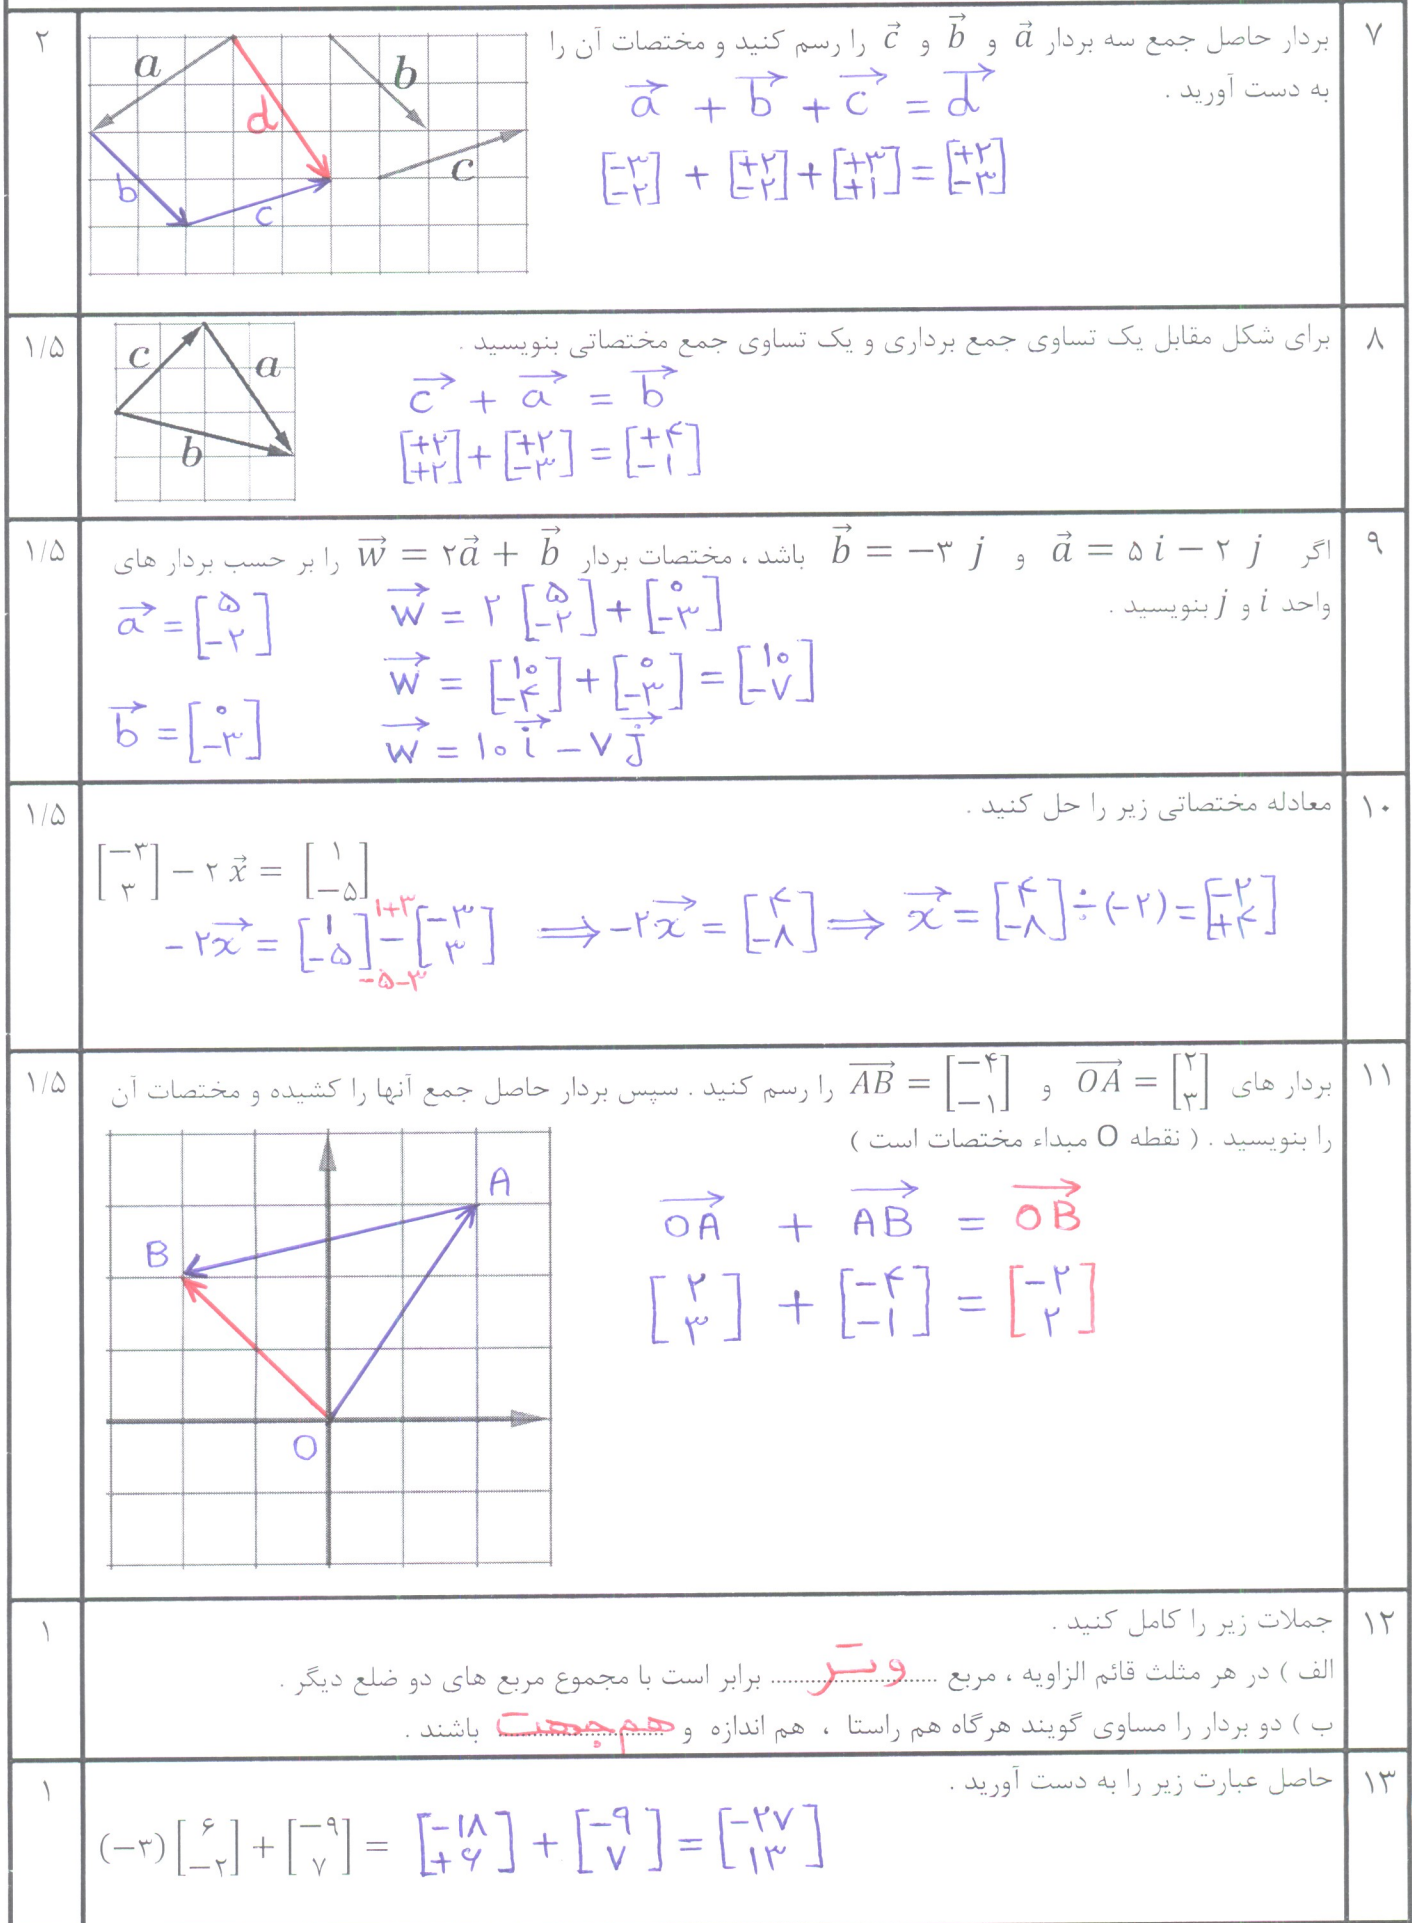 ۷ بردار حاصل جمع سه بردار a⃗ و b⃗ و c⃗ را رسم کنید و مختصات آن را ۲
به دست آورید .
a⃗ + b⃗ + c⃗ = d⃗
[-۳ -۲] + [+۲ -۲] + [+۳ +۱] = [+۲ -۳]
a b d c b c
۸ برای شکل مقابل یک تساوی جمع برداری و یک تساوی جمع مختصاتی بنویسید . ۱/۵
c⃗ + a⃗ = b⃗
[+۲ +۲] + [+۲ -۳] = [+۴ -۱]
c a b
۹ اگر a⃗ = ۵ i − ۲ j و b⃗ = −۳ j باشد ، مختصات بردار w⃗ = ۲a⃗ + b⃗ را بر حسب بردار های ۱/۵
واحد i و j بنویسید .
a⃗ = [۵ -۲]
w⃗ = ۲ [۵ -۲] + [۰ -۳]
w⃗ = [۱۰ -۴] + [۰ -۳] = [۱۰ -۷]
b⃗ = [۰ -۳]
w⃗ = ۱۰ i⃗ − ۷ j⃗
۱۰ معادله مختصاتی زیر را حل کنید . ۱/۵
[−۳ ۳] − ۲ x⃗ = [۱ −۵]
۱+۳
-۲x⃗ = [۱ -۵] − [-۳ ۳] ⟹ -۲x⃗ = [۴ -۸] ⟹ x⃗ = [۴ -۸] ÷ (-۲) = [-۲ +۴]
-۵-۳
۱۱ بردار های OA⃗ = [۲ ۳] و AB⃗ = [−۴ −۱] را رسم کنید . سپس بردار حاصل جمع آنها را کشیده و مختصات آن ۱/۵
را بنویسید . ( نقطه O مبداء مختصات است )
OA⃗ + AB⃗ = OB⃗
[۲ ۳] + [-۴ -۱] = [-۲ ۲]
A
B
O
۱۲ جملات زیر را کامل کنید . ۱
الف ) در هر مثلث قائم الزاویه ، مربع وتر برابر است با مجموع مربع های دو ضلع دیگر .
ب ) دو بردار را مساوی گویند هرگاه هم راستا ، هم اندازه و هم جهت باشند .
۱۳ حاصل عبارت زیر را به دست آورید . ۱
(−۳) [۶ −۲] + [−۹ ۷] = [-۱۸ +۶] + [-۹ ۷] = [-۲۷ ۱۳]